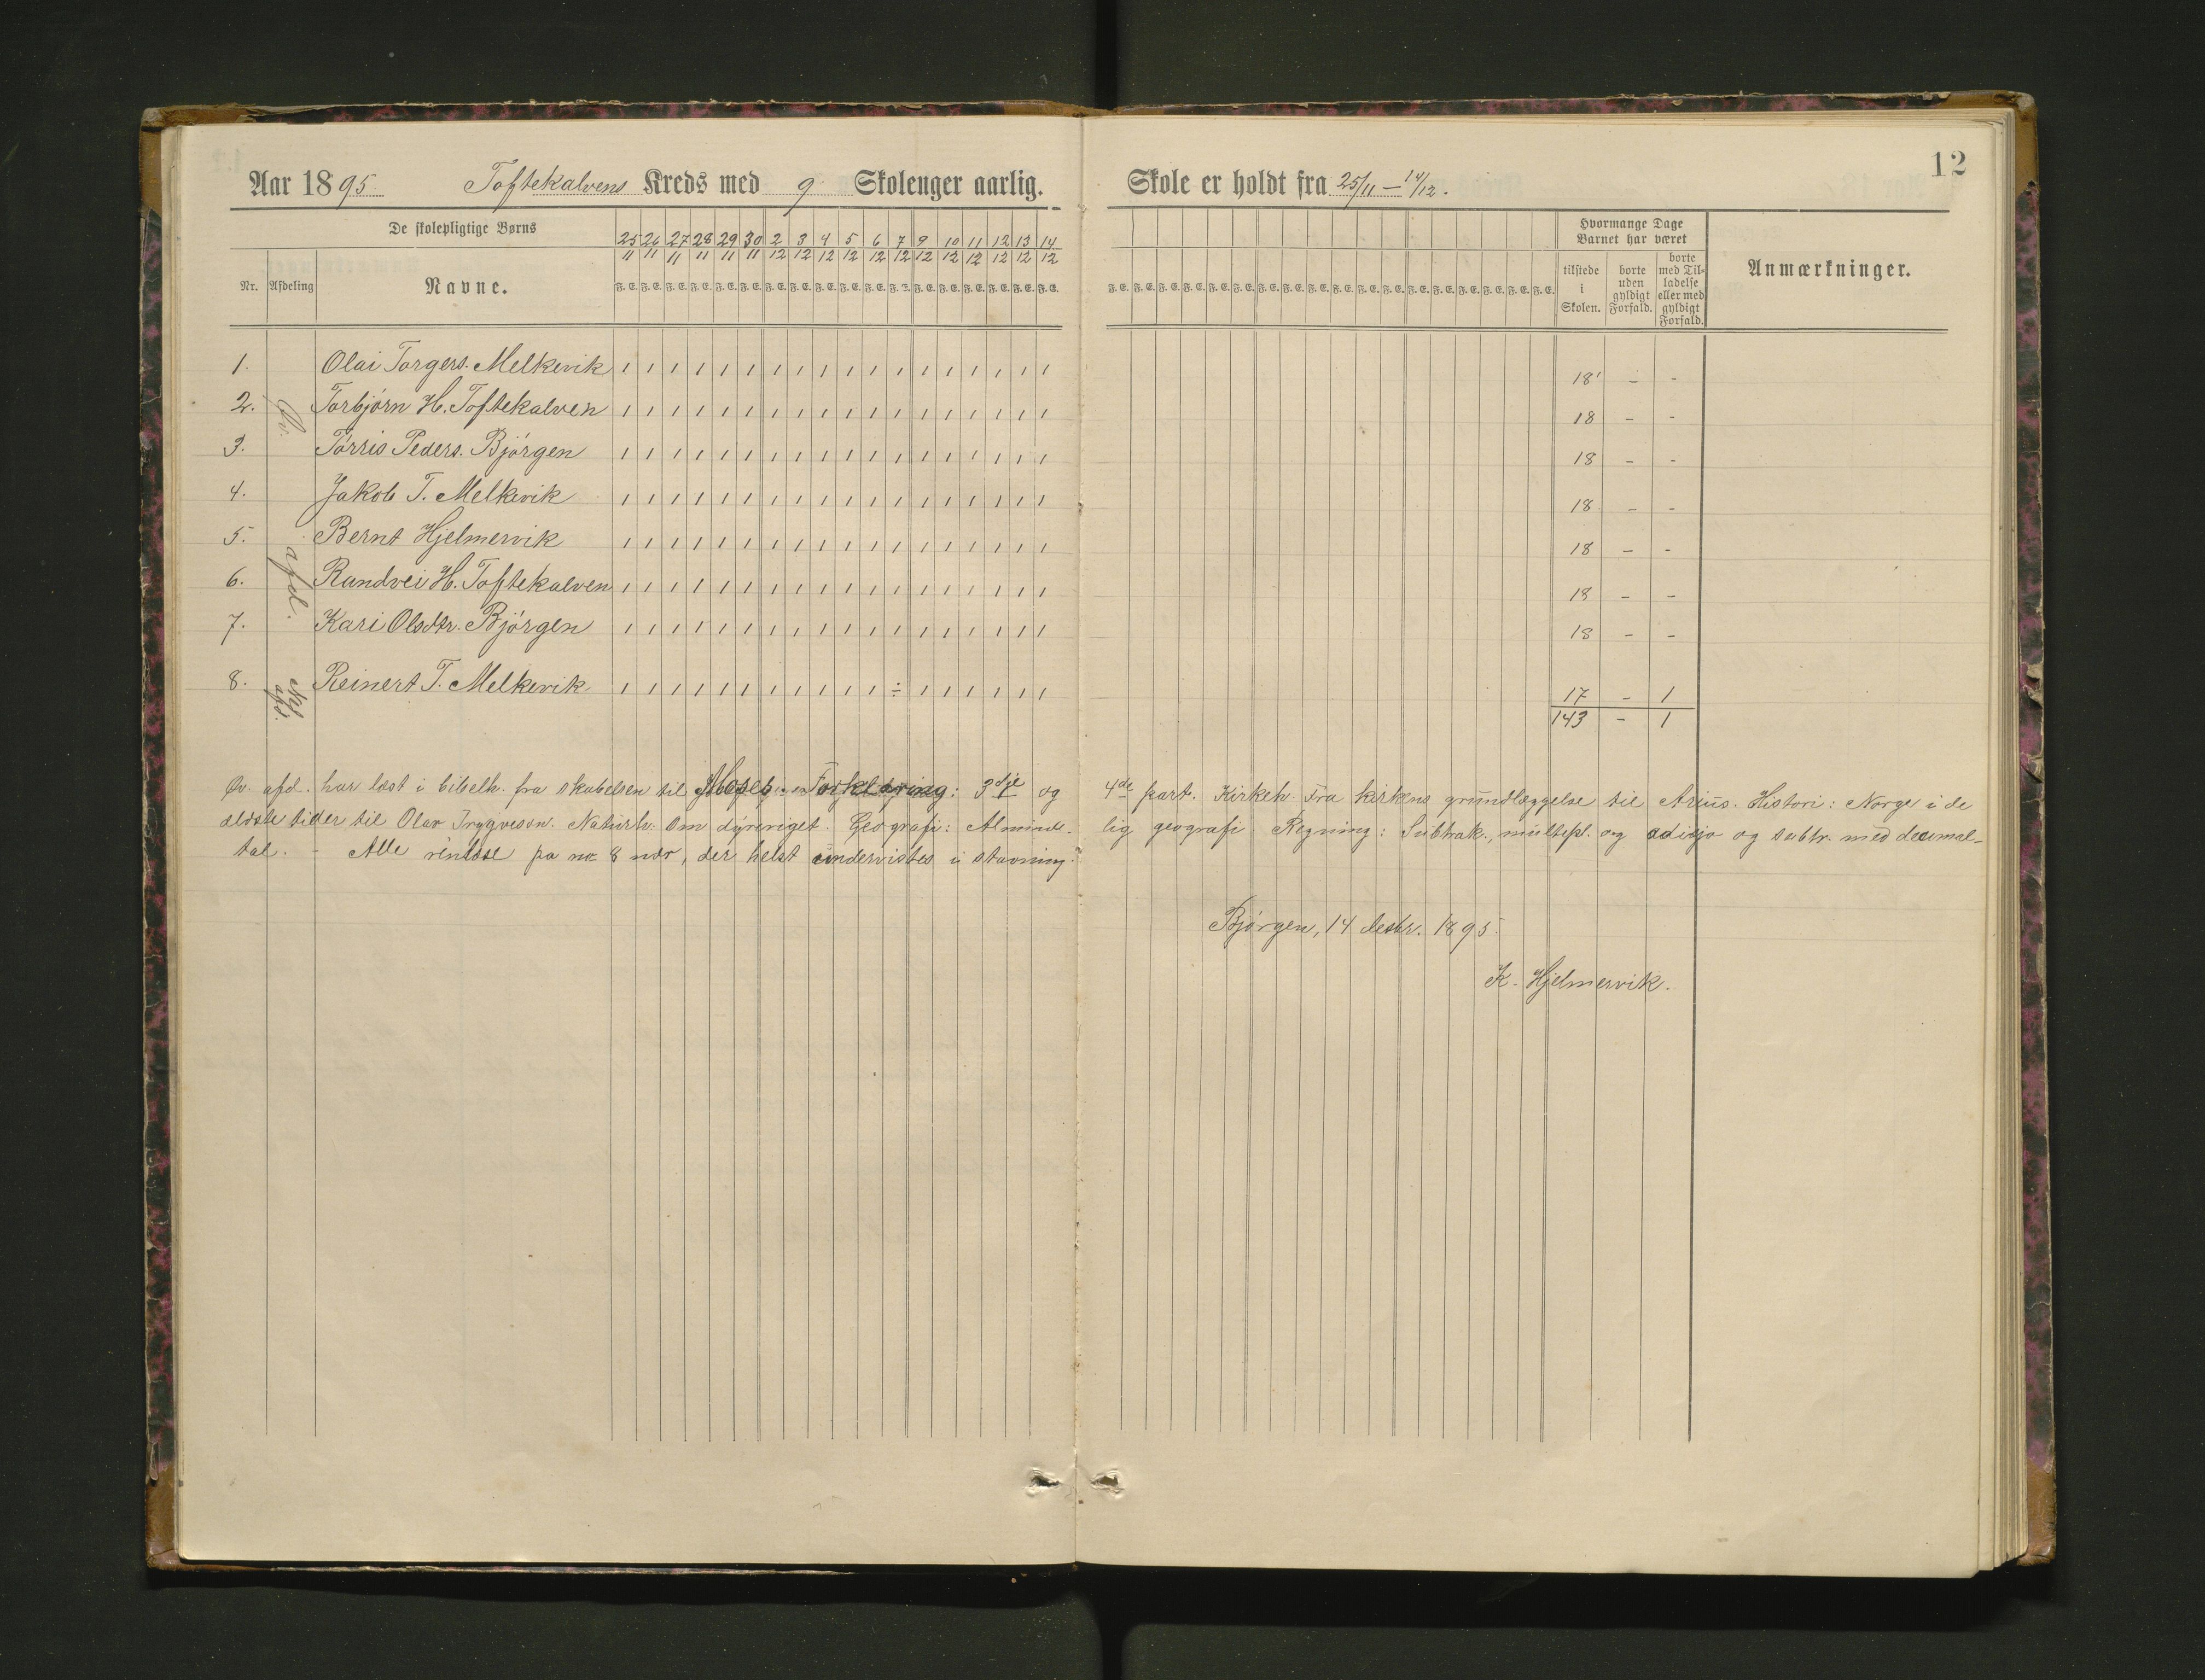 12
Aar 1895. Toftekalvens Kreds med 9 Skoleuger aarlig. Skole er holdt fra 25/11 – 14/12.
De skolepligtige Børns
Nr. Afdeling Navne.
25/11 26/11 27/11 28/11 29/11 30/11 2/12 3/12 4/12 5/12 6/12 7/12 9/12 10/12 11/12 12/12 13/12 14/12
F. E. F. E. F. E. F. E. F. E. F. E. F. E. F. E. F. E. F. E. F. E. F. E. F. E. F. E. F. E. F. E. F. E. F. E.
F. E. F. E. F. E. F. E. F. E. F. E. F. E. F. E. F. E. F. E. F. E. F. E. F. E. F. E. F. E. F. E. F. E. F. E.
Hvormange Dage
Barnet har været
tilstede i Skolen.
borte uden gyldigt Forfald.
borte med Tilladelse eller med gyldigt Forfald.
Anmærkninger.
Øv. afd.
1. Olai Torgers. Melkevik 1 1 1 1 1 1 1 1 1 1 1 1 1 1 1 1 1 1 18 - -
2. Torbjørn H. Toftekalven 1 1 1 1 1 1 1 1 1 1 1 1 1 1 1 1 1 1 18 - -
3. Tørris Peders. Bjørgen 1 1 1 1 1 1 1 1 1 1 1 1 1 1 1 1 1 1 18 - -
4. Jakob T. Melkevik 1 1 1 1 1 1 1 1 1 1 1 1 1 1 1 1 1 1 18 - -
5. Bernt Hjelmervik 1 1 1 1 1 1 1 1 1 1 1 1 1 1 1 1 1 1 18 - -
6. Randvei H. Toftekalven 1 1 1 1 1 1 1 1 1 1 1 1 1 1 1 1 1 1 18 - -
7. Kari Olsdtr. Bjørgen 1 1 1 1 1 1 1 1 1 1 1 1 1 1 1 1 1 1 18 - -
Ned. afd.
8. Reinert T. Melkevik 1 1 1 1 1 1 1 1 1 1 1 ÷ 1 1 1 1 1 1 17 - 1
143 - 1
Øv. afd. har læst i bibelh. fra skabelsen til Moses. Forklaring: 3dje og 4de part. Kirkeh. Fra kirkens grundlæggelse til Arius. Histori: Norge i de
ældste tider til Olav Trygvesøn. Naturh. Om dyreriget. Geografi: Alminde- lig geografi. Regning: Subtrak., multipl. og adisjo og subtr. med decimal-
tal. - Alle rentlæse på no 8 nær, der helst undervistes i stavning.
Bjørgen, 14 desbr. 1895.
K. Hjelmervik.